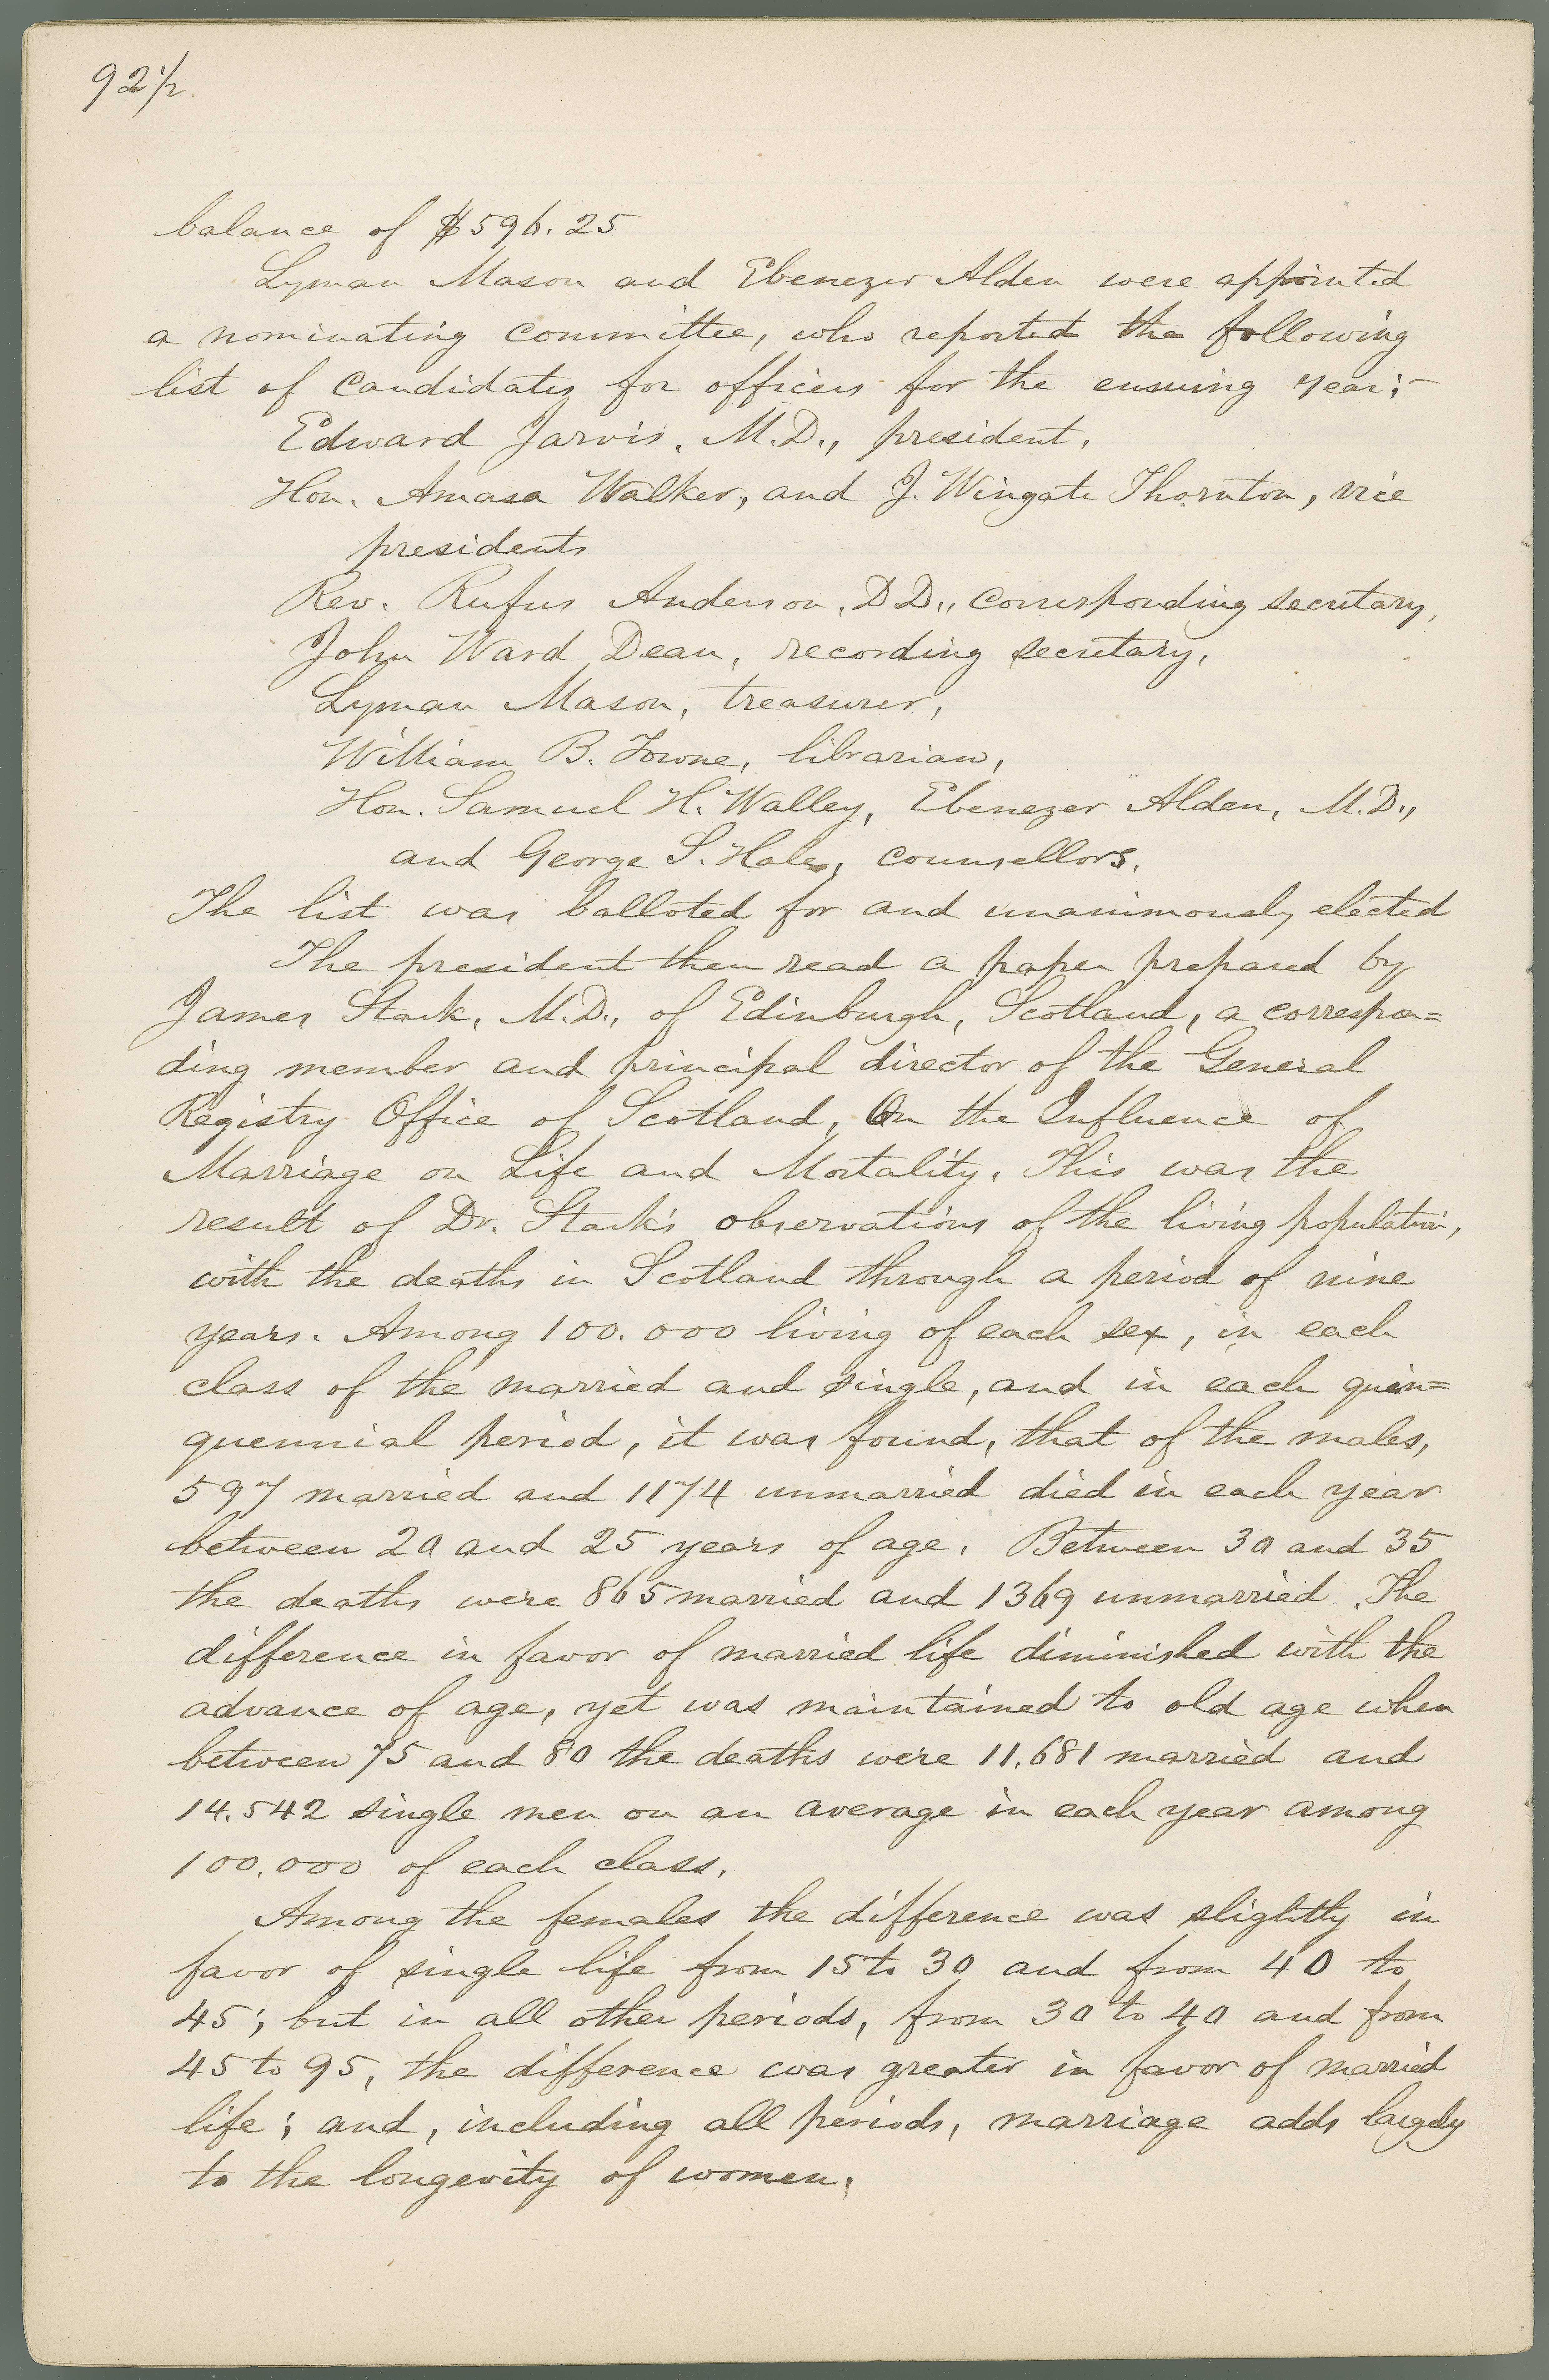 92 1/2
balance of $596.25
Lyman Mason and Ebenezer Alden were appointed
a nominating committee, who reported the following
list of candidates for officers for the ensuing year;-
Edward Jarvis, M.D., president,
Hon. Amasa Walker, and J. Wingate Thornton, vice
presidents
Rev. Rufus Anderson, D.D., corresponding secretary,
John Ward Dean, recording secretary,
Lyman Mason, treasurer,
William B. Towne, librarian,
Hon. Samuel H. Walley, Ebenezer Alden, M.D.,
and George S. Hale, counsellors.
The list was balloted for and unanimously elected
The president then read a paper prepared by
James Stark, M.D., of Edinburgh, Scotland, a correspon=
ding member and principal director of the General
Registry Office of Scotland, On the Influence of
Marriage on Life and Mortality. This was the
result of Dr. Stark's observations of the living population,
with the deaths in Scotland through a period of nine
years. Among 100.000 living of each sex, in each
class of the married and single, and in each quin=
quennial period, it was found, that of the males,
597 married and 1174 unmarried died in each year
between 20 and 25 years of age. Between 30 and 35
the deaths were 865 married and 1369 unmarried. The
difference in favor of married life diminished with the
advance of age, yet was maintained to old age when
between 75 and 80 the deaths were 11.681 married and
14.542 single men on an average in each year among
100.000 of each class.
Among the females the difference was slightly in
favor of single life from 15 to 30 and from 40 to
45; but in all other periods, from 30 to 40 and from
45 to 95, the difference was greater in favor of married
life; and, including all periods, marriage adds largely
to the longevity of women.